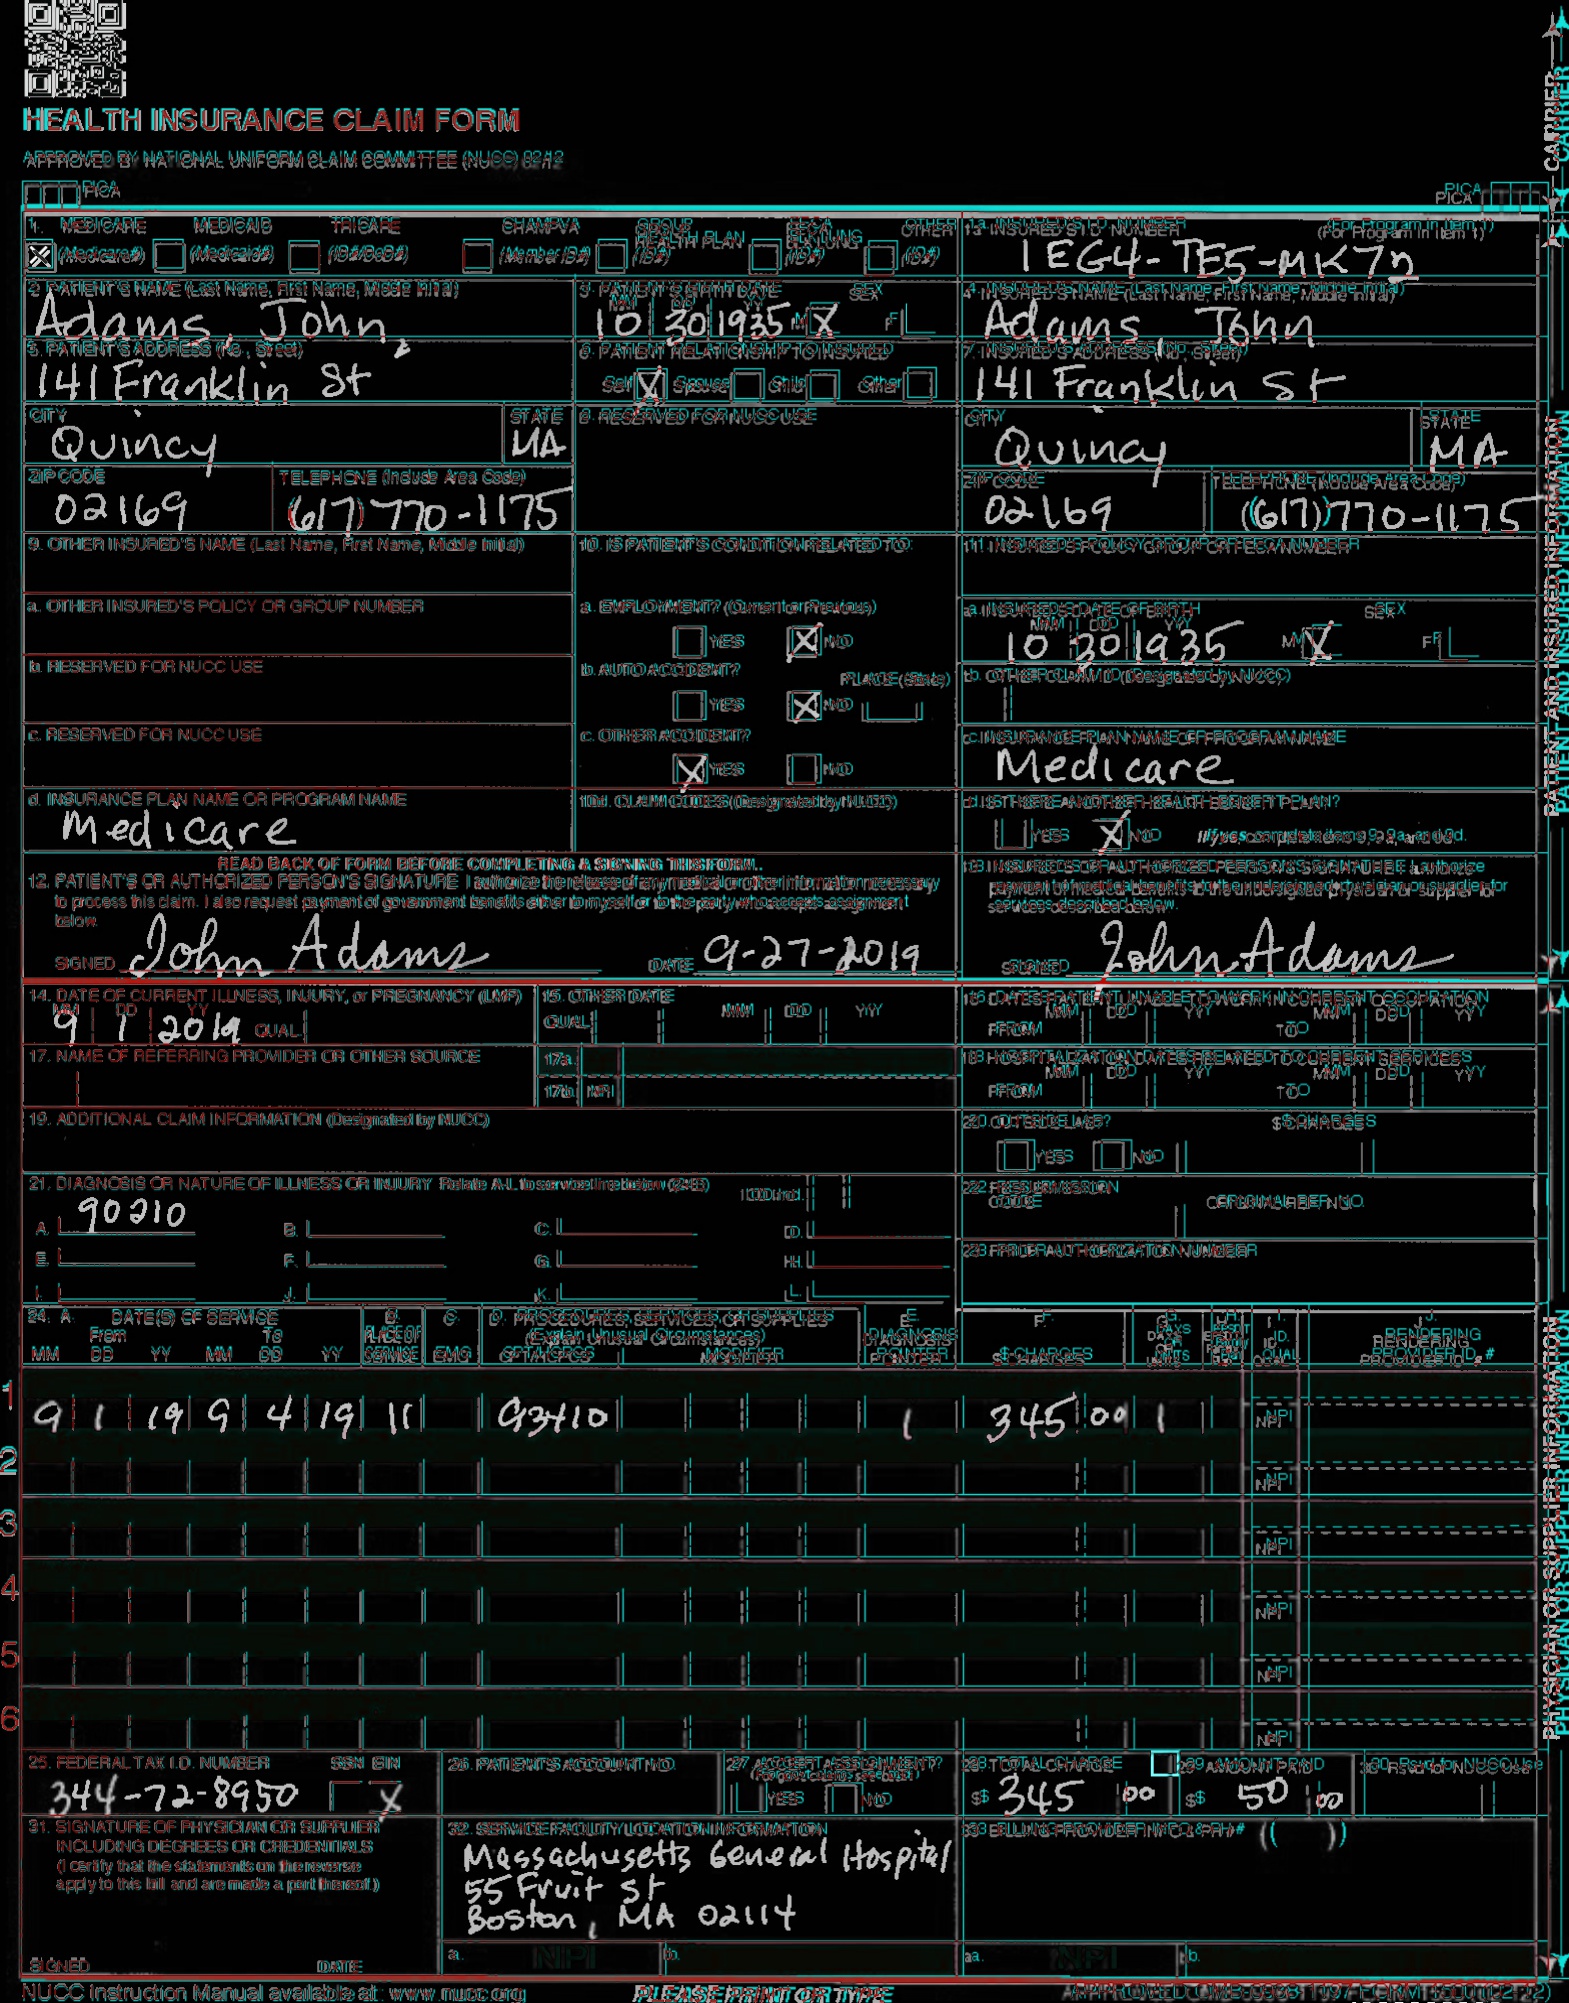 HEALTH INSURANCE CLAIM FORM
APPROVED BY NATIONAL UNIFORM CLAIM COMMITTEE (NUCC) 02/12
PICA
PICA
CARRIER
1. MEDICARE MEDICAID TRICARE CHAMPVA GROUP HEALTH PLAN FECA BLK LUNG OTHER
(Medicare#) (Medicaid#) (ID#/DoD#) (Member ID#) (ID#) (ID#) (ID#)
INSURED'S I.D. NUMBER (For Program in Item 1)
1EG4-TE5-MK72
2. PATIENT'S NAME (Last Name, First Name, Middle Initial)
Adams, John,
3. PATIENT'S BIRTH DATE SEX
MM DD YY
10 30 1935 M X F
4. INSURED'S NAME (Last Name, First Name, Middle Initial)
Adams, John
5. PATIENT'S ADDRESS (No., Street)
141 Franklin St
6. PATIENT RELATIONSHIP TO INSURED
Self X Spouse Child Other
7. INSURED'S ADDRESS (No., Street)
141 Franklin St
CITY STATE
Quincy MA
8. RESERVED FOR NUCC USE
CITY STATE
Quincy MA
ZIP CODE TELEPHONE (Include Area Code)
02169 (617) 770-1175
ZIP CODE TELEPHONE (Include Area Code)
02169 (617) 770-1175
9. OTHER INSURED'S NAME (Last Name, First Name, Middle Initial)
10. IS PATIENT'S CONDITION RELATED TO:
11. INSURED'S POLICY GROUP OR FECA NUMBER
a. OTHER INSURED'S POLICY OR GROUP NUMBER
a. EMPLOYMENT? (Current or Previous)
YES X NO
a. INSURED'S DATE OF BIRTH SEX
MM DD YY
10 30 1935 M X F
b. RESERVED FOR NUCC USE
b. AUTO ACCIDENT? PLACE (State)
YES X NO
b. OTHER CLAIM ID (Designated by NUCC)
c. RESERVED FOR NUCC USE
c. OTHER ACCIDENT?
X YES NO
c. INSURANCE PLAN NAME OR PROGRAM NAME
Medicare
d. INSURANCE PLAN NAME OR PROGRAM NAME
Medicare
10d. CLAIM CODES (Designated by NUCC)
d. IS THERE ANOTHER HEALTH BENEFIT PLAN?
YES X NO If yes, complete items 9, 9a, and 9d.
READ BACK OF FORM BEFORE COMPLETING & SIGNING THIS FORM.
12. PATIENT'S OR AUTHORIZED PERSON'S SIGNATURE I authorize the release of any medical or other information necessary
to process this claim. I also request payment of government benefits either to myself or to the party who accepts assignment
below.
SIGNED John Adams DATE 9-27-2019
13. INSURED'S OR AUTHORIZED PERSON'S SIGNATURE I authorize
payment of medical benefits to the undersigned physician or supplier for
services described below.
SIGNED John Adams
PATIENT AND INSURED INFORMATION
14. DATE OF CURRENT ILLNESS, INJURY, or PREGNANCY (LMP)
MM DD YY
9 1 2019 QUAL.
15. OTHER DATE
QUAL. MM DD YY
16. DATES PATIENT UNABLE TO WORK IN CURRENT OCCUPATION
MM DD YY MM DD YY
FROM TO
17. NAME OF REFERRING PROVIDER OR OTHER SOURCE
17a.
17b. NPI
18. HOSPITALIZATION DATES RELATED TO CURRENT SERVICES
MM DD YY MM DD YY
FROM TO
19. ADDITIONAL CLAIM INFORMATION (Designated by NUCC)
20. OUTSIDE LAB? $ CHARGES
YES NO
21. DIAGNOSIS OR NATURE OF ILLNESS OR INJURY Relate A-L to service line below (24E) ICD Ind.
A. 90210 B. C. D.
E. F. G. H.
I. J. K. L.
22. RESUBMISSION CODE ORIGINAL REF. NO.
23. PRIOR AUTHORIZATION NUMBER
24. A. DATE(S) OF SERVICE B. C. D. PROCEDURES, SERVICES, OR SUPPLIES E. F. G. H. I. J.
From To PLACE OF (Explain Unusual Circumstances) DIAGNOSIS DAYS OR UNITS ID. RENDERING
MM DD YY MM DD YY SERVICE EMG CPT/HCPCS MODIFIER POINTER $ CHARGES QUAL. PROVIDER ID. #
1 9 1 19 9 4 19 11 93410 1 345 00 1 NPI
2 NPI
3 NPI
4 NPI
5 NPI
6 NPI
25. FEDERAL TAX I.D. NUMBER SSN EIN
344-72-8950 X
26. PATIENT'S ACCOUNT NO.
27. ACCEPT ASSIGNMENT?
(For govt. claims, see back)
YES NO
28. TOTAL CHARGE
$ 345 00
29. AMOUNT PAID
$ 50 00
30. Rsvd for NUCC Use
31. SIGNATURE OF PHYSICIAN OR SUPPLIER
INCLUDING DEGREES OR CREDENTIALS
(I certify that the statements on the reverse
apply to this bill and are made a part thereof.)
SIGNED DATE
32. SERVICE FACILITY LOCATION INFORMATION
Massachusetts General Hospital
55 Fruit St
Boston, MA 02114
a. NPI b.
33. BILLING PROVIDER INFO & PH # ( )
a. NPI b.
PHYSICIAN OR SUPPLIER INFORMATION
NUCC Instruction Manual available at: www.nucc.org
PLEASE PRINT OR TYPE